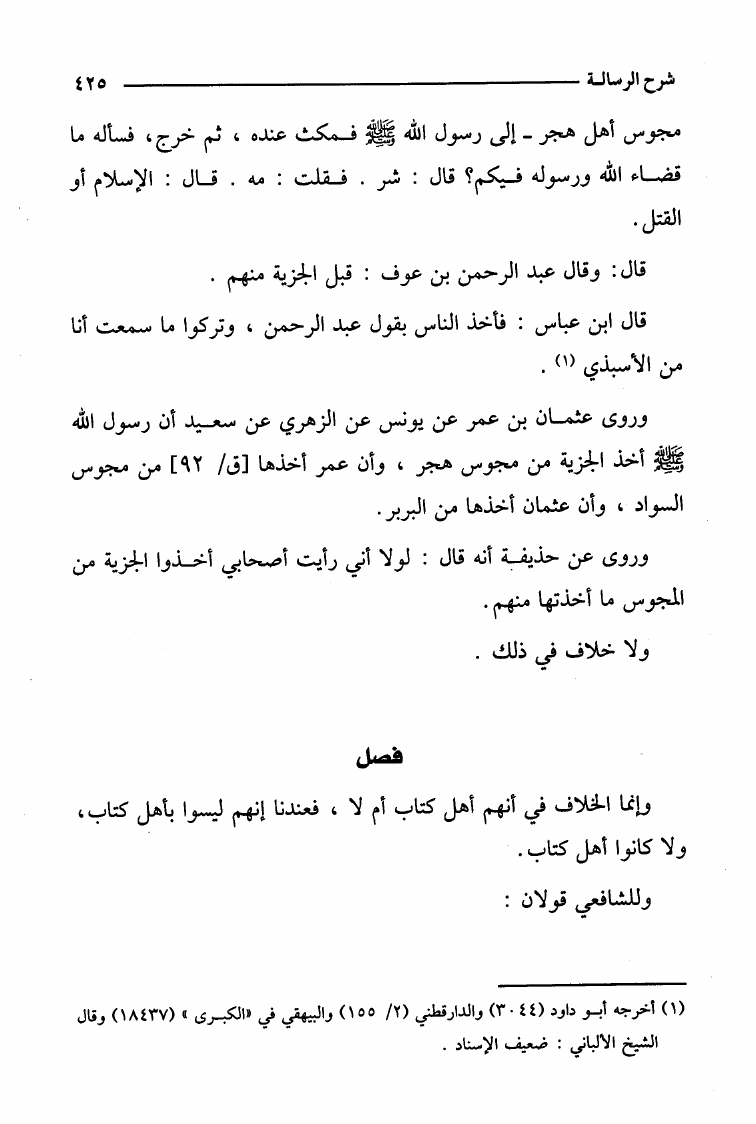 شرح الرسالة ٤٢٥
مجوس أهل هجر - إلى رسول الله ﷺ فمكث عنده ، ثم خرج، فسأله ما
قضاء الله ورسوله فيكم؟ قال : شر . فقلت : مه . قال : الإسلام أو
القتل.
قال: وقال عبد الرحمن بن عوف : قبل الجزية منهم .
قال ابن عباس : فأخذ الناس بقول عبد الرحمن ، وتركوا ما سمعت أنا
من الأسبذي (١) .
وروى عثمان بن عمر عن يونس عن الزهري عن سعيد أن رسول الله
ﷺ أخذ الجزية من مجوس هجر ، وأن عمر أخذها [ق/ ٩٢] من مجوس
السواد ، وأن عثمان أخذها من البربر.
وروى عن حذيفة أنه قال : لولا أني رأيت أصحابي أخذوا الجزية من
المجوس ما أخذتها منهم.
ولا خلاف في ذلك .
فصل
وإنما الخلاف في أنهم أهل كتاب أم لا ، فعندنا إنهم ليسوا بأهل كتاب،
ولا كانوا أهل كتاب.
وللشافعي قولان :
(١) أخرجه أبو داود (٣٠٤٤) والدارقطني (٢/ ١٥٥) والبيهقي في «الكبرى » (١٨٤٣٧) وقال
الشيخ الألباني : ضعيف الإسناد .